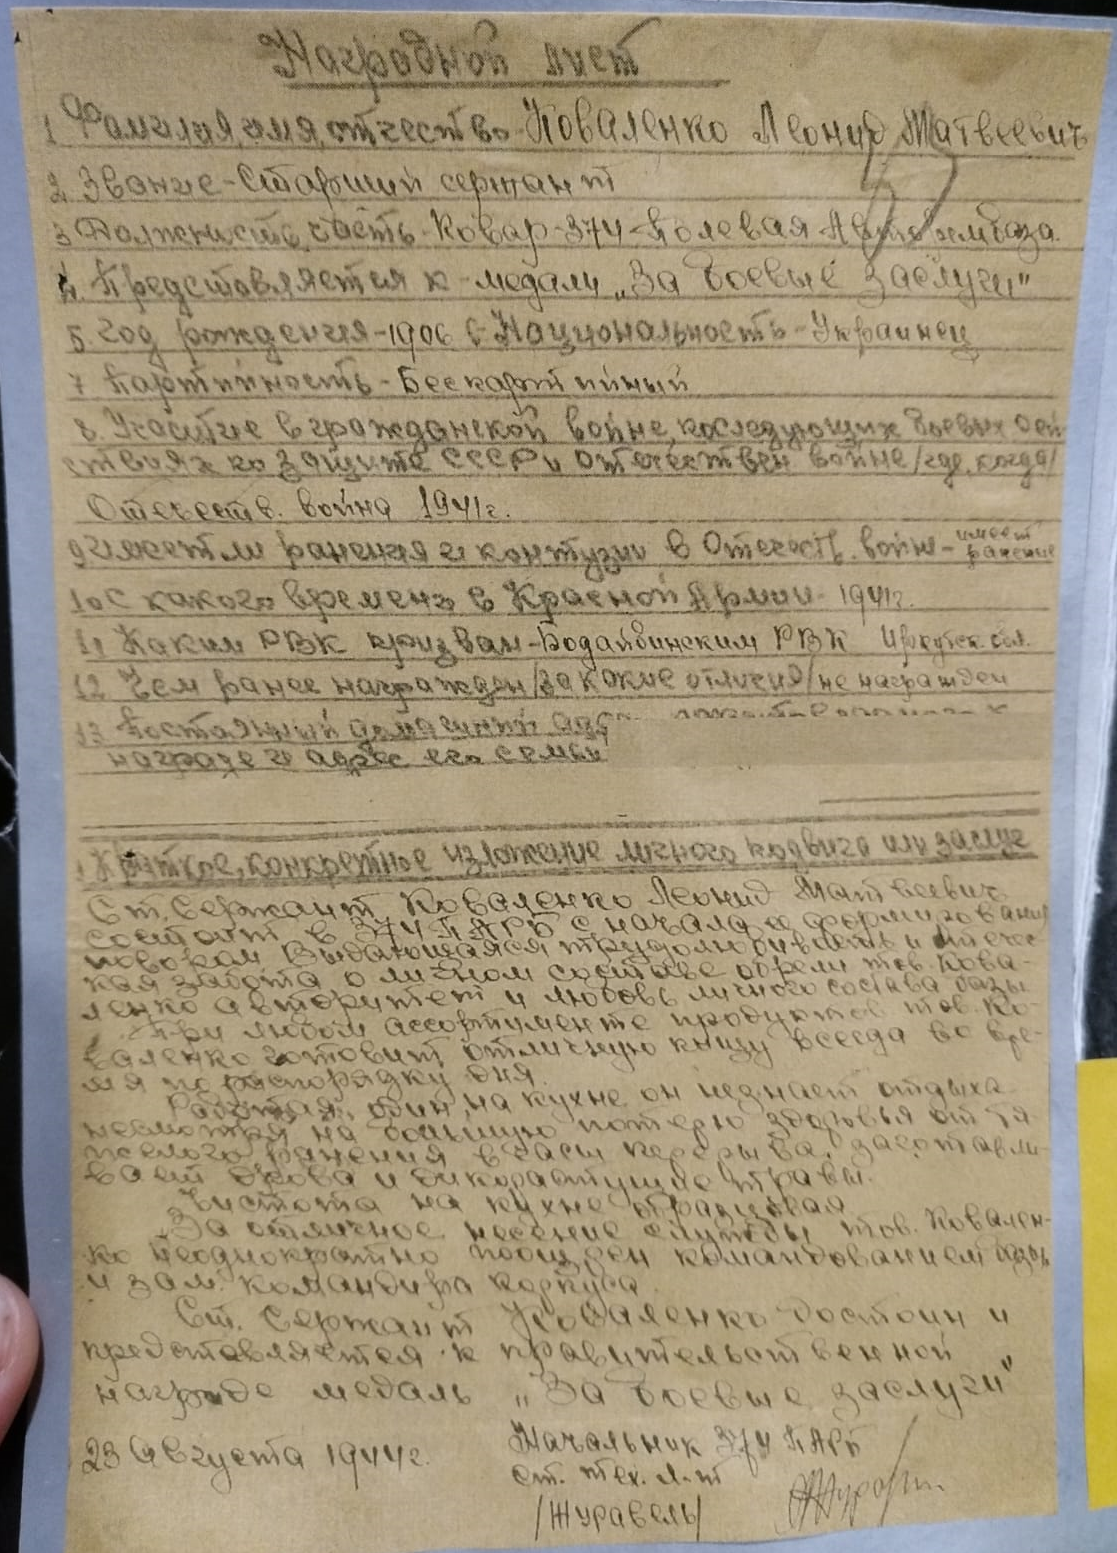 Наградной лист
1 Фамилия, имя, отчество - Коваленко Леонид Матвеевич
2. Звание - Старший сержант
3 Должность, часть - Ковар - 374 - Полевая Авторембаза.
4. Представляется к - медали „За боевые заслуги"
5. Год рождения - 1906 6 - Национальность - Украинец
7 Партийность - Беспартийный
8. Участие в гражданской войне, последующих боевых дей-
ствиях по защите СССР и отечествен войне /где, когда/
Отечеств. война 1941г.
9 Имеет ли ранения и контузии в Отечеств. войне - имеет
ранение
10 С какого времени в Красной Армии - 1941г.
11 Каким РВК призван - Бодайбинским РВК Иркутск. обл.
12 Чем ранее награжден /за какие отличия/ не награжден
13 Постоянный домашний
награде и адрес его семьи
1 Краткое, конкретное изложение личного подвига или заслуг
Ст. Сержант Коваленко Леонид Матвеевич
состоит в 374 ПАРБ с начала ее формирования
поваром. Выдающаяся трудолюбивость и отечес-
кая забота о личном составе обрели тов. Кова-
ленко авторитет и любовь личного состава базы.
При любом ассортименте продуктов тов. Ко-
валенко готовит отличную пищу всегда во вре-
мя по распорядку дня.
Работая, один, на кухне он незнает отдыха
несмотря на большую потерю здоровья от тя-
желого ранения в часы перерыва, заготавли-
вает дрова и дикорастущие травы.
Чистота на кухне образцовая
За отличное несение службы тов. Ковален-
ко неоднократно поощрен командованием базы
и зам. командира корпуса.
Ст. Сержант Коваленко достоин и
представляется к правительственной
награде медаль „За боевые заслуги"
23 Августа 1944г.
Начальник 374 ПАРБ
ст. тех. л-т
/Журавель/